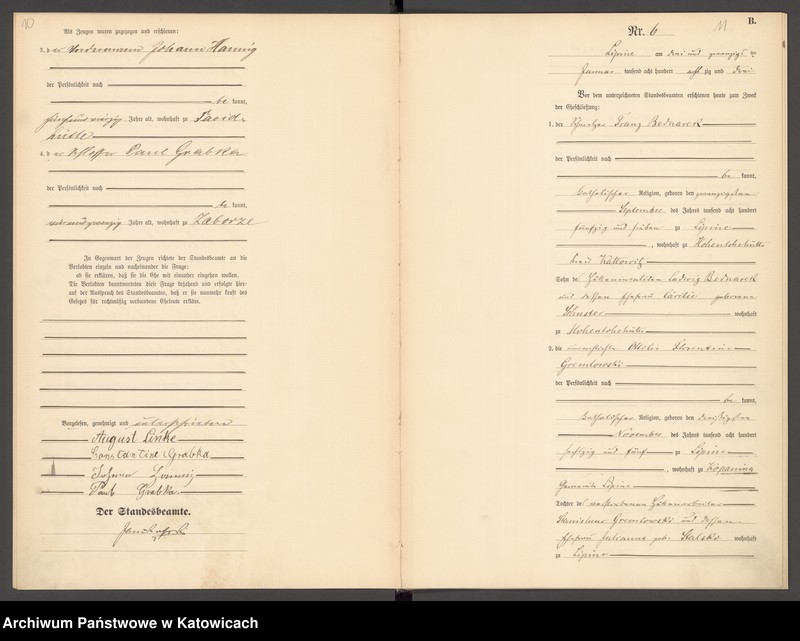 10
Als Zeugen waren zugezogen und erschienen:
3. der Vordermann Johann Hannig
der Persönlichkeit nach
be kannt,
Jahre alt, wohnhaft zu David-
hütte
4. der Schlosser Paul Grabka
der Persönlichkeit nach
be kannt,
Jahre alt, wohnhaft zu Zaborze
In Gegenwart der Zeugen richtete der Standesbeamte an die
Verlobten einzeln und nacheinander die Frage:
ob sie erklären, daß sie die Ehe mit einander eingehen wollen.
Die Verlobten beantworteten diese Frage bejahend und erfolgte hier-
auf der Ausspruch des Standesbeamten, daß er sie nunmehr kraft des
Gesetzes für rechtmäßig verbundene Eheleute erkläre.
Vorgelesen, genehmigt und unterschrieben
August Linke
Constantine Grabka
Johann Hannig
Paul Grabka
Der Standesbeamte.
11
B.
Nr. 6
Lipine am drei und zwanzigsten
Januar tausend acht hundert acht zig und drei
Vor dem unterzeichneten Standesbeamten erschienen heute zum Zweck
der Eheschließung:
1. der Franz Bednarek
der Persönlichkeit nach
be kannt,
katholischer Religion, geboren den zwanzigsten
September des Jahres tausend acht hundert
fünfzig und sieben zu Lipine
, wohnhaft zu Hohenlohehütte
Kreis Kattowitz
Sohn des Häuerinvaliden Ludwig Bednarek
und dessen Ehefrau geborene
Schuster wohnhaft
zu Hohenlohehütte
2. die Ottilie Florentine
Gremlowski
der Persönlichkeit nach
be kannt,
katholischer Religion, geboren den dreißigsten
November des Jahres tausend acht hundert
sechszig und fünf zu Lipine
, wohnhaft zu Kopanina
Gemeinde Lipine
Tochter des verstorbenen
Stanislaus Gremlowski und dessen
Ehefrau Julianna geb. wohnhaft
zu Lipine
Archiwum Państwowe w Katowicach